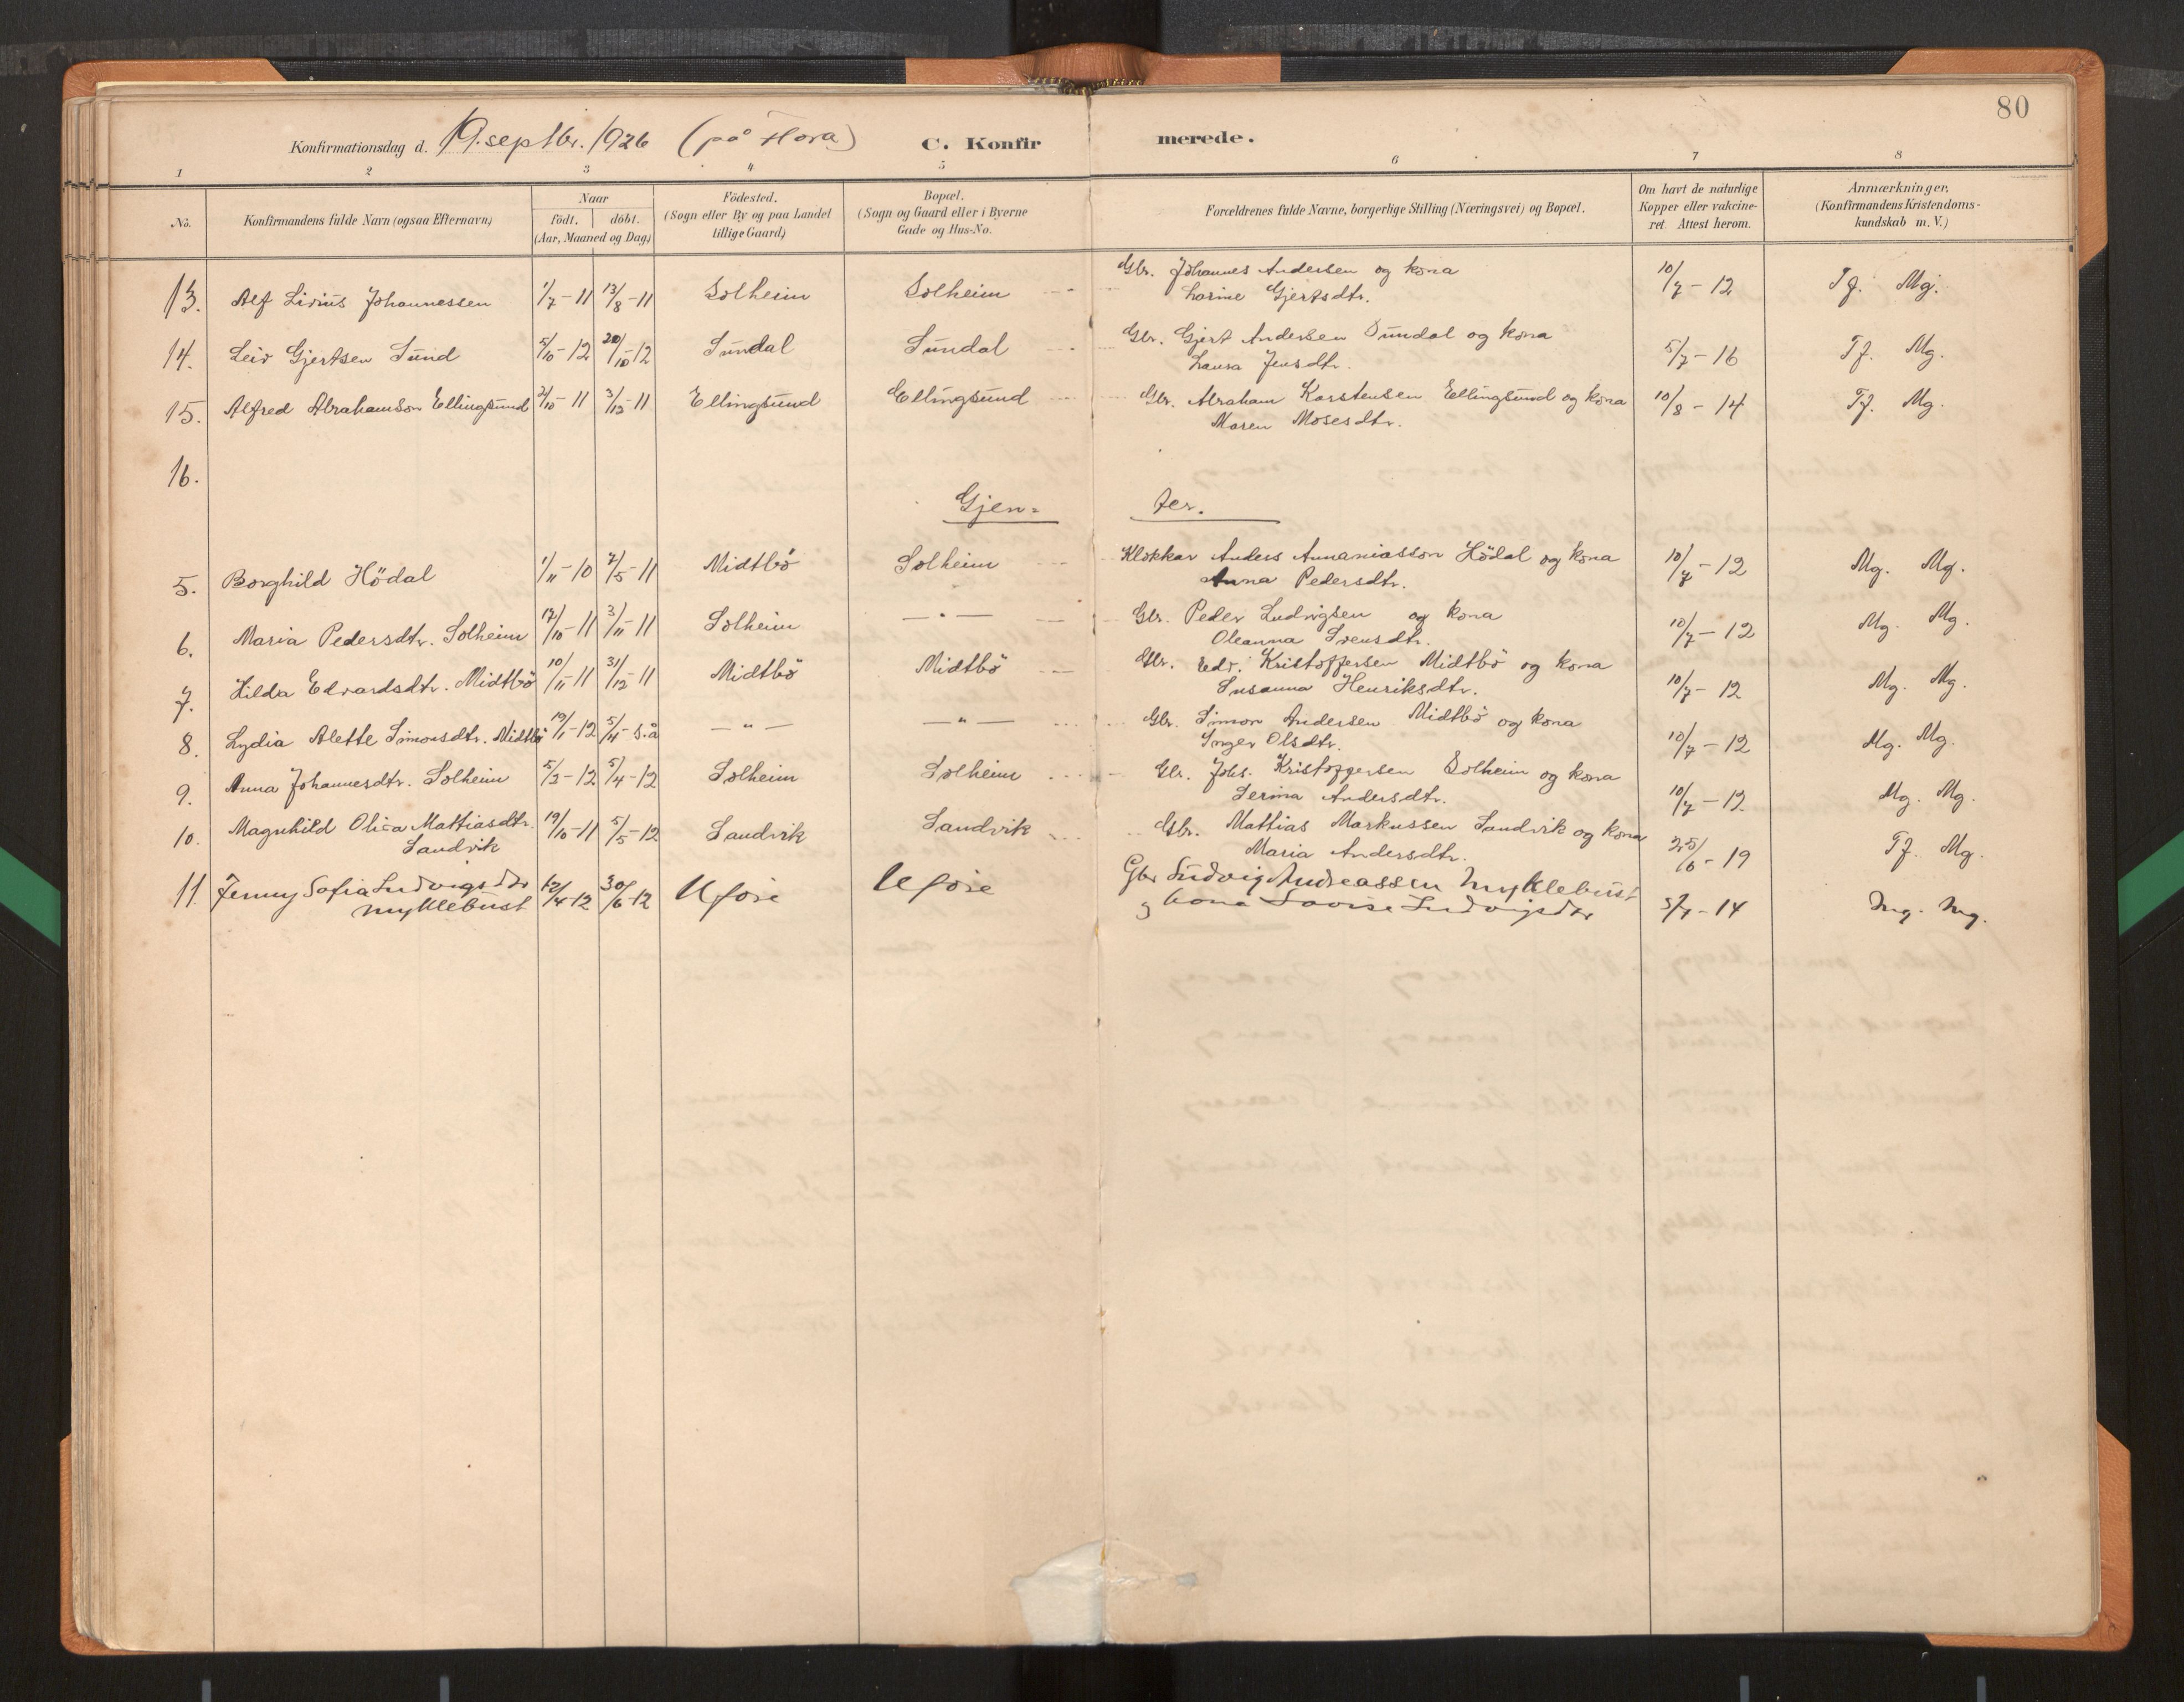 80
Konfirmationsdag d. 19. septbr. 1926 (på Flora) C. Konfirmerede.
1 2 3 4 5 6 7 8
No. Konfirmandens fulde Navn (ogsaa Efternavn) Naar født. døbt. (Aar, Maaned og Dag) Fødested. (Sogn eller By og paa Landet tillige Gaard) Bopæl. (Sogn og Gaard eller i Byerne Gade og Hus-No. Forældrenes fulde Navne, borgerlige Stilling (Næringsvei) og Bopæl. Om havt de naturlige Kopper eller vakcineret. Attest herom. Anmærkninger, (Konfirmandens Kristendomskundskab m. V.)
13. Alf Livius Johannessen 1/7-11 13/8-11 Solheim Solheim Gbr. Johannes Andersen og kona 10/7-12 Tf. Mg.
Larine Gjertsdtr.
14. Leiv Gjertsen Sund 5/10-12 20/10-12 Sundal Sundal Gbr. Gjert Andersen Sundal og kona 5/7-16 Tf. Mg.
Laura Jensdtr.
15. Alfred Abrahamson Ellingsund 2/10-11 3/12-11 Ellingsund Ellingsund Gbr. Abraham Karstensen Ellingsund og kona 10/8-14 Tf. Mg.
Maren Mosesdtr.
16.
Gjen= ter.
5. Borghild Hödal 1/11-10 7/5-11 Midtbö Solheim Klokkar Anders Annaniasson Hödal og kona 10/7-12 Mg. Mg.
Anna Pedersdtr.
6. Maria Pedersdtr. Solheim 17/10-11 3/11-11 Solheim — " — Gbr. Peder Ludvigsen og kona 10/7-12 Mg. Mg.
Oleanna Svensdtr.
7. Hilda Edvardsdtr. Midtbö 10/11-11 31/12-11 Midtbö Midtbö Gbr. Edv. Kristoffersen Midtbö og kona 10/7-12 Mg. Mg.
Susanna Henriksdtr.
8. Lydia Alette Simonsdtr. Midtbö 19/1-12 5/4-s.å — " — — " — Gbr. Simon Andersen Midtbö og kona 10/7-12 Mg. Mg.
Inger Olsdtr.
9. Anna Johannesdtr. Solheim 5/3-12 5/4-12 Solheim Solheim Gbr. Johs. Kristoffersen Solheim og kona 10/7-12 Mg. Mg.
Serina Andersdtr.
10. Magnhild Olica Mattiasdtr. 19/10-11 5/5-12 Sandvik Sandvik Gbr. Mattias Markussen Sandvik og kona 25/6-19 Tf. Mg.
Sandvik Maria Andersdtr.
11. Jenny Sofia Ludvigsdtr 12/4-12 30/6-12 Gbr Ludvig Andreassen Myklebust 5/7-14 Mg. Mg.
Myklebust og kona Lovise Ludvigsdtr